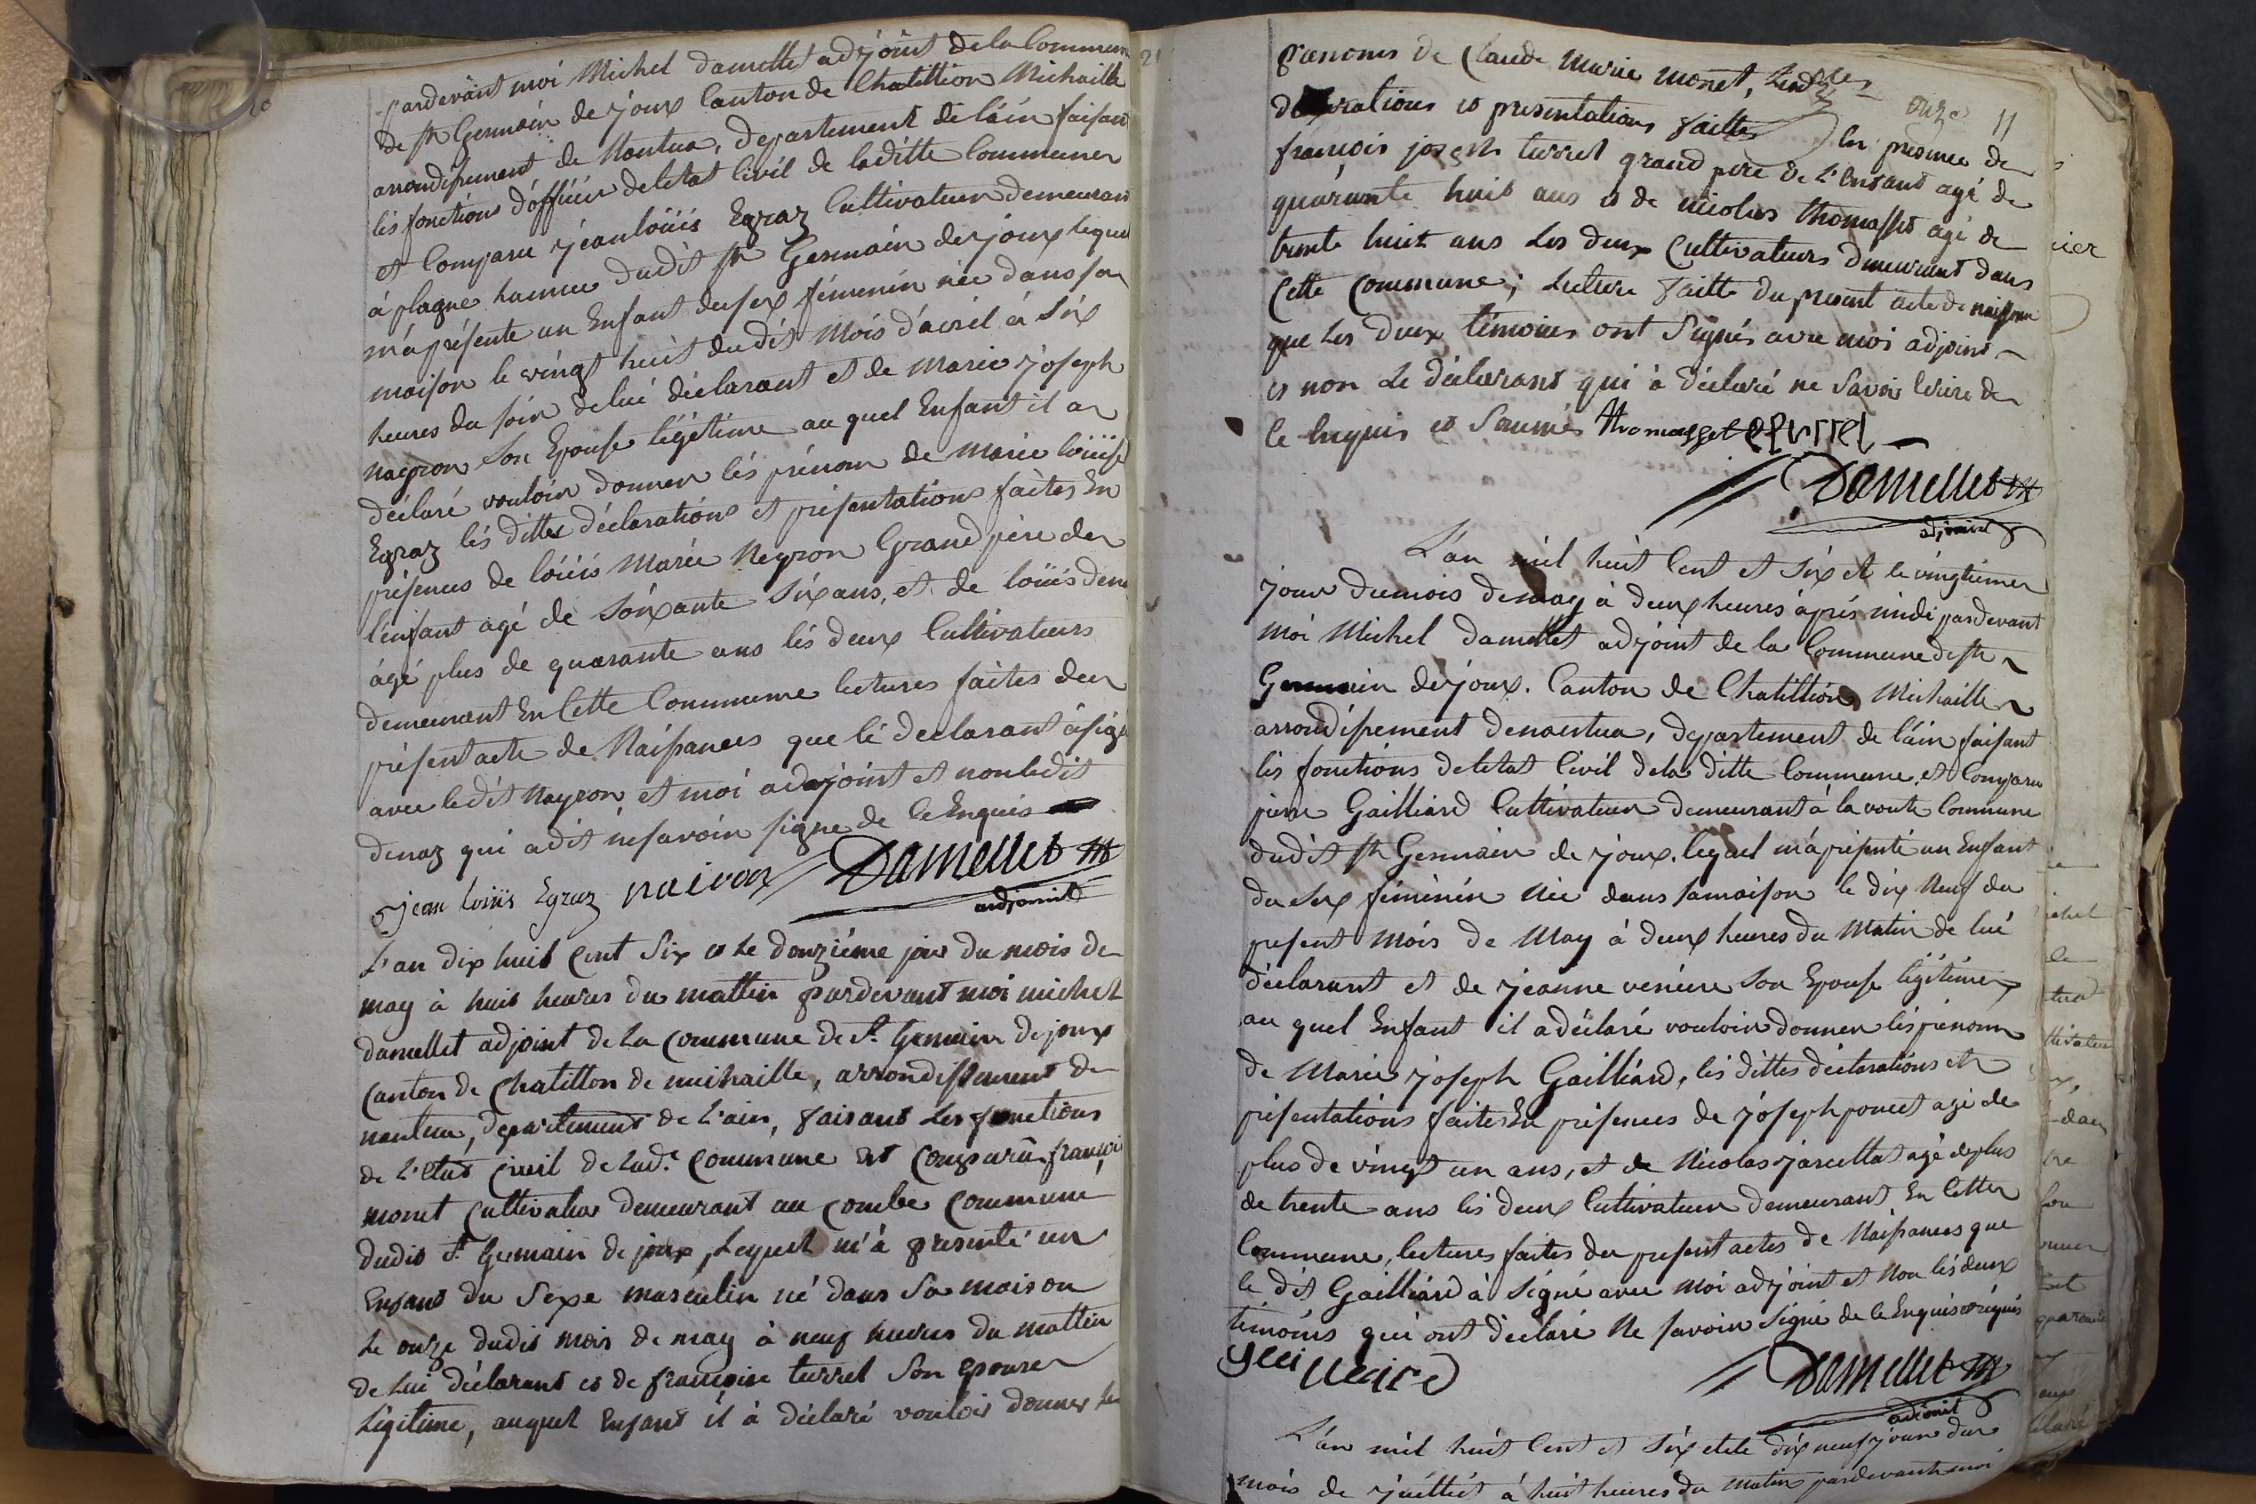 pardevant moi Michel damellet adjoint de la Commune
de st Germain de joux Canton de Chatillion Michaille
arrondissement de Nantua, departement de láin faisant
lés fonctions d'officier deletat Civil de laditte Commune
et Comparu jéan loüis Egraz Cultivateur demeurant
á plagne hameau dudit st Germain de joux lequel
m'a présente un Enfant du sex féminin née dans sa
maison le vingt huit dudit Mois d'avril á Six
heures du soir de lui déclarant et de Marie joseph
Nayron Son Epouse légitime au quel Enfant il a
déclaré vouloir donner lés prénom de Marie loüise
Egraz lés dittes déclarations et présentations faites En
présences de loüis Marie Neyron Grand père de
l'enfant agé de Soixante Six ans, et de loüis denaz
ágé plus de quarante ans lés deux Cultivateurs
demeurant En Cette Commune lectures faites du
présent acte de Naissances que lé declarant à signé
avec ledit Nayron et moi adjoint et non ledit
denaz qui adit ne savoir signe de Ce Enquis
jean loüis Egraz nairon Damellet
adjoint
L'an dix huit Cent Six et Le douziéme jour du mois de
may à huit heures du mattin pardevant moi michel
damellet adjoint de La Commune de St. Germain de joux
Canton de Chatillon de michaille, arrondissement de
nantua, departement de L'ain, faisant Les fonctions
de L'etat Civil de Lad.e Commune est Comparû françois
monet Cultivateur demeurant au Combe Commune
dudit St. Germain de joux, Lequel m'à presenté un
Enfant du Sexe masculin né dans Sa maison
Le onze dudit mois de may à neuf heures du mattin
de Lui déclarant et de françoise turrel Son epouse
Légitime, auquel Enfant il à déclaré vouloir donner les
prenoms de Claude Marie monet, Lesd.tes
onze 11
declarations et presentations faittes En presence de
françois joseph turrel grand pere de L'Enfant agé de
quarante huit ans et de nicolas thomasset agé de
trente huit ans Les deux Cultivateurs demeurant dans
Cette Commune; Lecture faitte du present acte de naissance
que Les deux témoins ont Signés avec moi adjoint
et non Le déclarant qui à déclaré ne Savoir Ecrire de
Ce Enquis et Sommés thomasset turrel
Damellet
adjoint
L'an mil huit Cent et Six et le vingtieme
jour dumois demay à deux heures áprés midi pardevant
moi Michel damellet adjoint de la Commune de st
Germain de joux. Canton de Chatillion Michaille
arrondissement denantua, departement de láin faisant
lés fonctions deletat Civil dela ditte Commune et Comparu
piere Gailliard Cultivateur demeurant á la voute Commune
dudit st Germain de joux. lequel m'á présenté un Enfant
du sex féminin née dans samaison le dix Neuf du
present Mois de May á deux heures du Matin de lui
déclarant et de jéanne veniere Son Epouse légitime
au quel Enfant il adéclaré vouloir donner lés prenoms
de Marie joseph Gailliard, lés dittes déclarations et
présentations faites En présences de joseph poncet agé de
plus de vingt un ans, et de Nicolas jarcellat agé deplus
de trente ans lés deux Cultivateur demeurant En Cette
Commune, lectures faites du present actes de Naissances que
le dit Gailliard à signé avec moi adjoint et Non lés deux
témoins qui ont déclaré Ne savoir Signé de Ce Enquis et requis
Damellet
adjoint
L'án mil huit Cent et Six etle dix neuf jour du
mois de juilliet á huit heures du matin pardevant moi